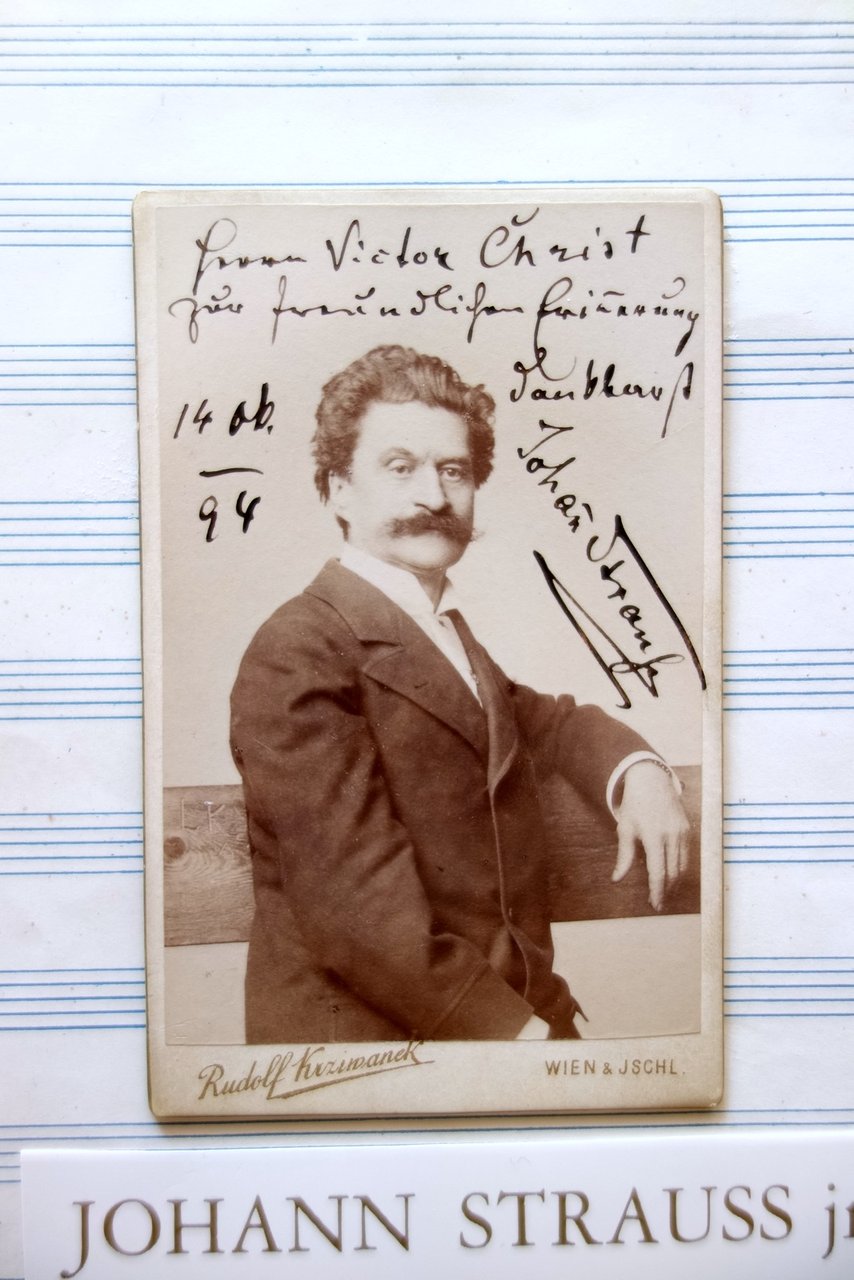 Herrn Victor Christ
zur freundlichen Erinnerung
dankbarst
14 Ob.
94
Johann Strauss
Rudolf Krziwanek
WIEN & JSCHL.
JOHANN STRAUSS jr